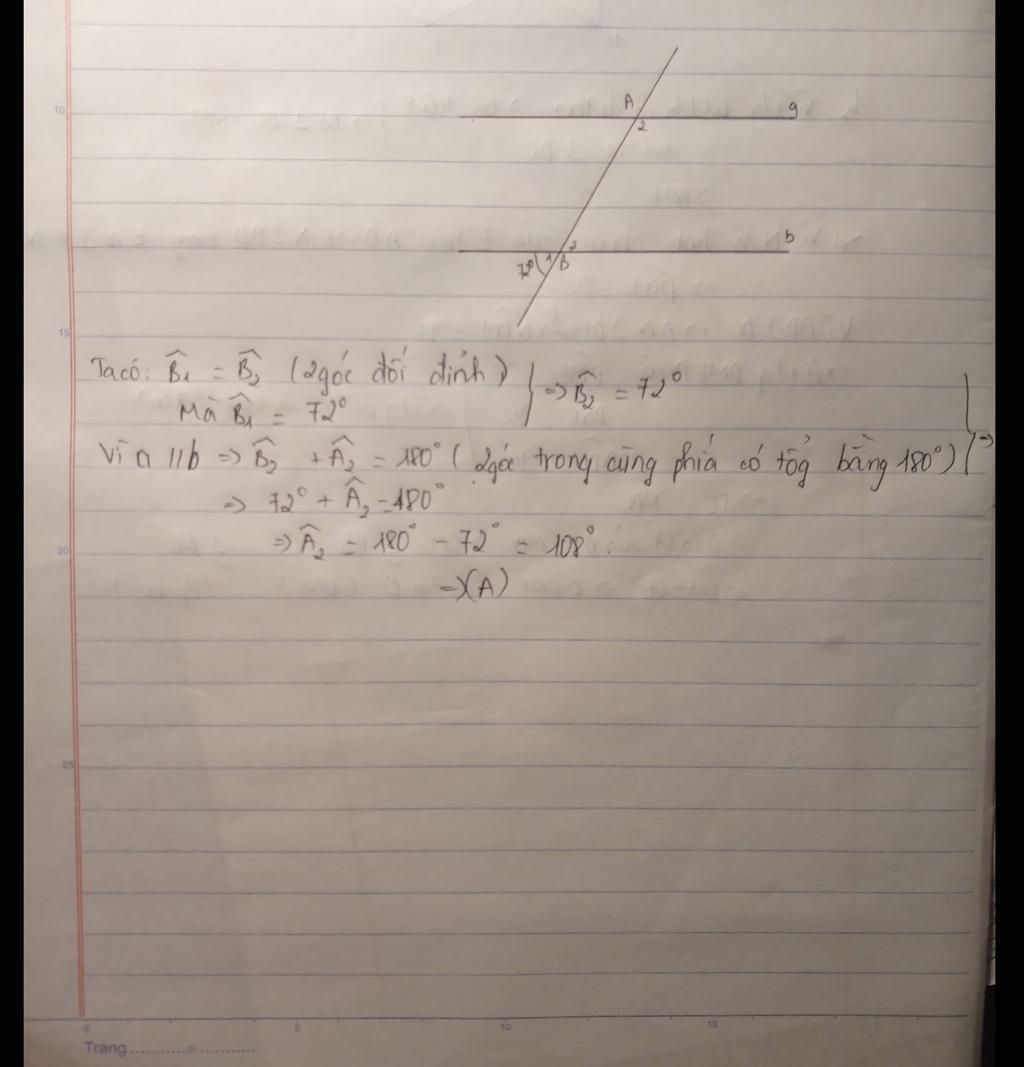 10
A
a
2
2
b
72° 1 B
15
Ta có: B̂₁ = B̂₂ (2 góc đối đỉnh)
Mà B̂₁ = 72°
=> B̂₂ = 72°
Vì a // b => B̂₂ + Â₂ = 180° (2 góc trong cùng phía có tổg bằng 180°) =>
=> 72° + Â₂ = 180°
20
=> Â₂ = 180° - 72° = 108°.
=> (A)
25
0 5 10 15
Trang